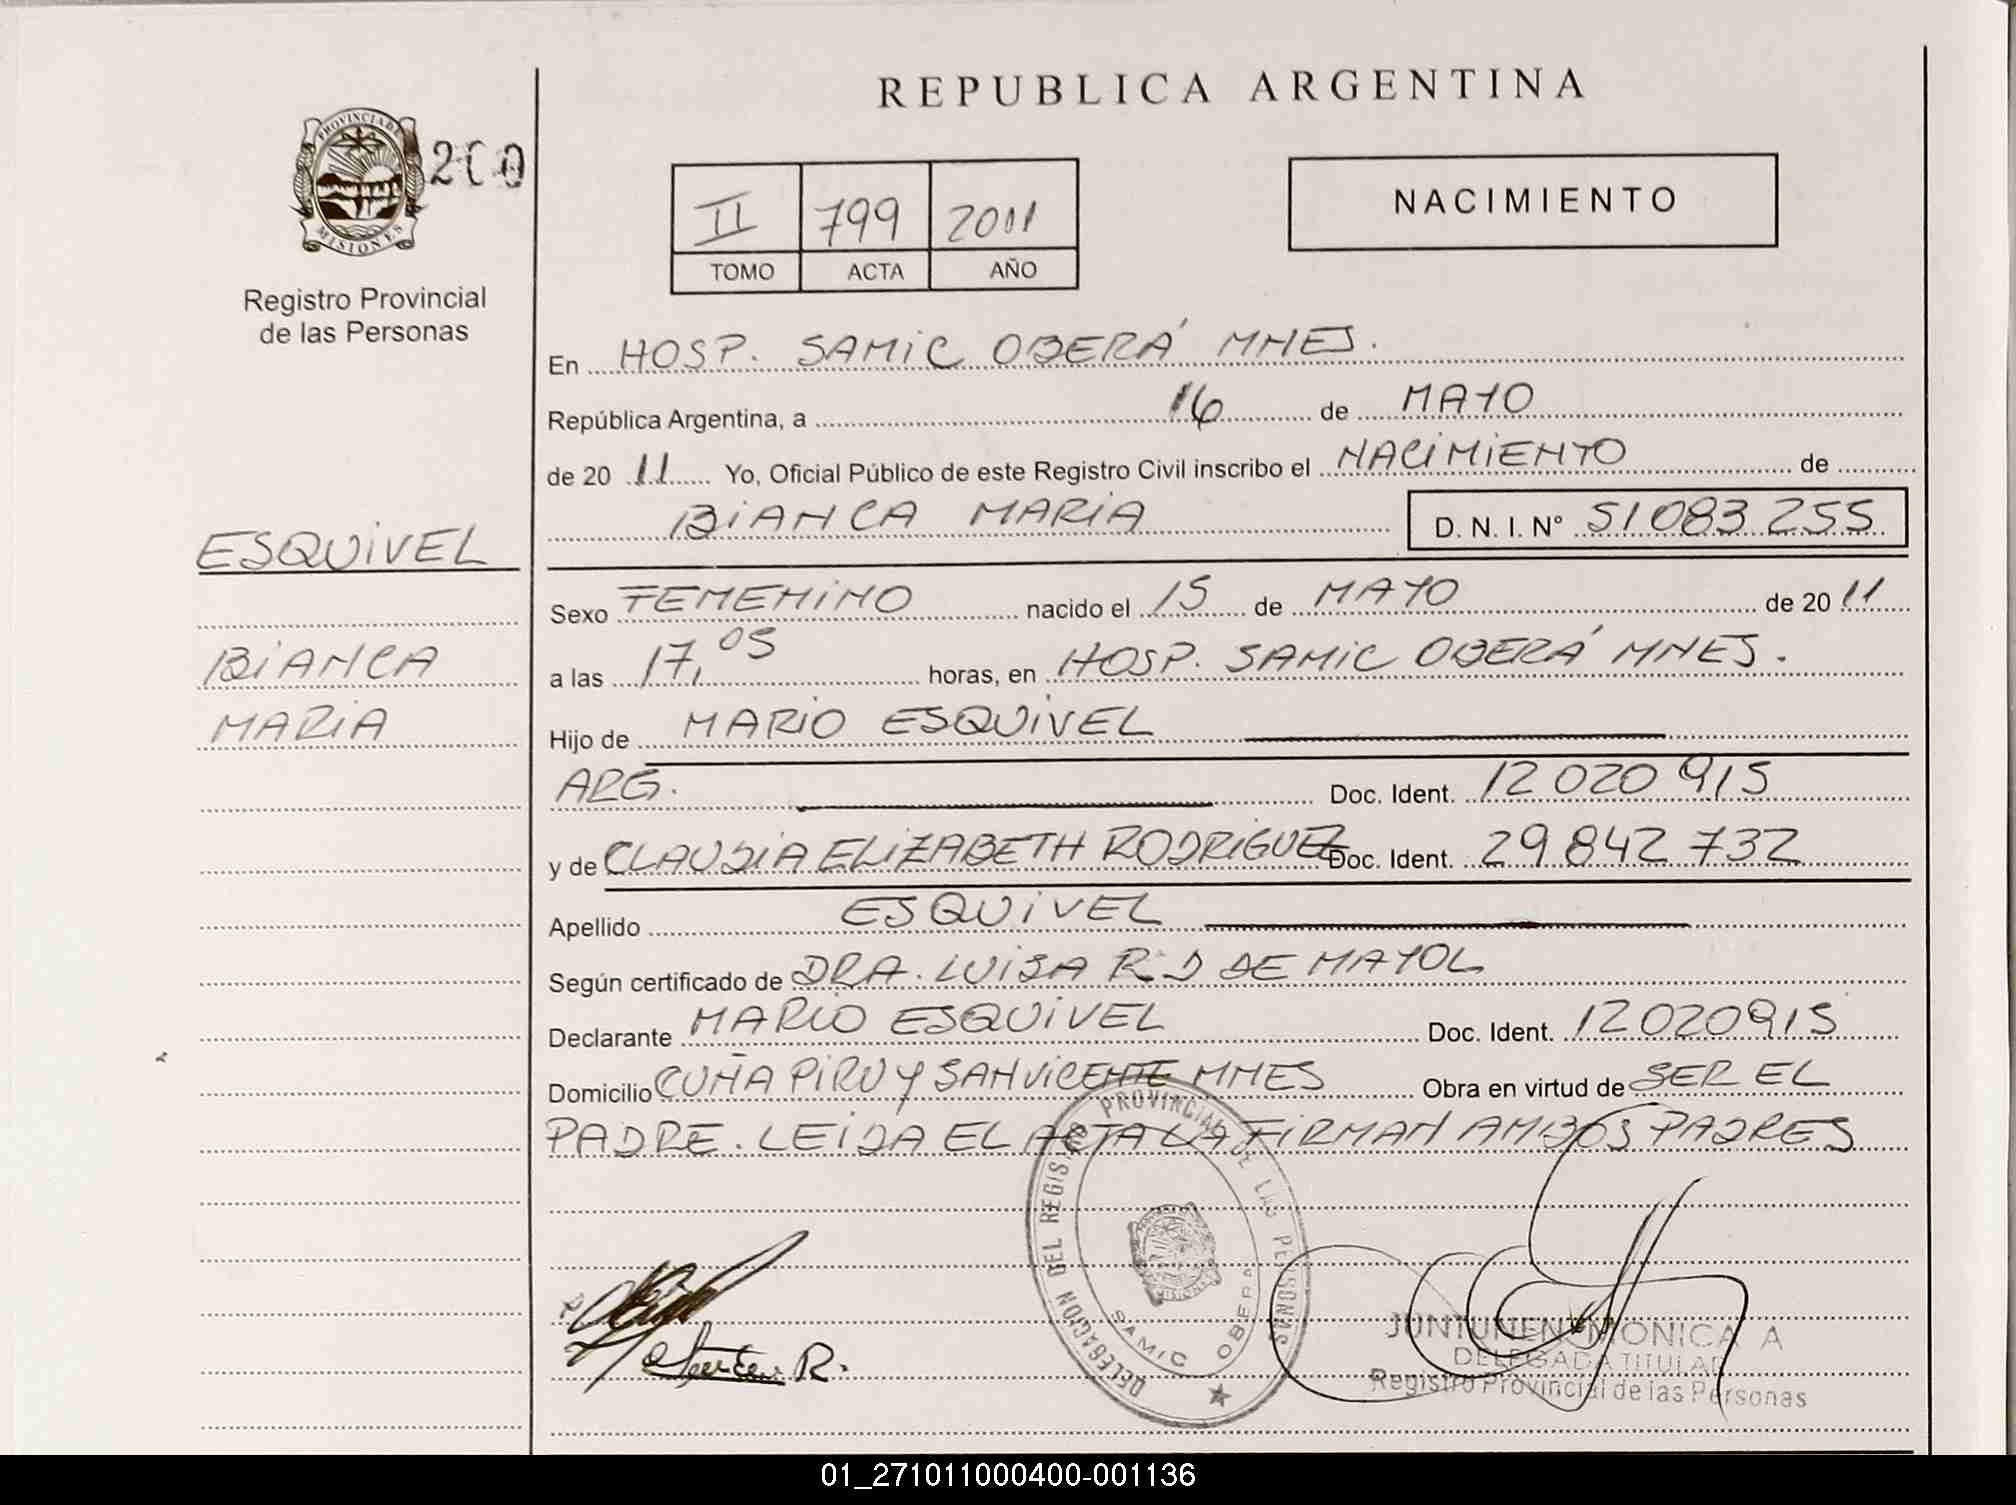 REPUBLICA ARGENTINA
PROVINCIA DE
MISIONES
200
Registro Provincial
de las Personas
II 799 2011
TOMO ACTA AÑO
NACIMIENTO
En HOSP. SAMIC OBERÁ MNES.
República Argentina, a 16 de MAYO
de 20 11 Yo, Oficial Público de este Registro Civil inscribo el NACIMIENTO de
BIANCA MARIA D. N. I. N° 51083255
ESQUIVEL
BIANCA
MARIA
Sexo FEMENINO nacido el 15 de MAYO de 20 11
a las 17,05 horas, en HOSP. SAMIC OBERÁ MNES.
Hijo de MARIO ESQUIVEL
ARG. Doc. Ident. 12020915
y de CLAUDIA ELIZABETH RODRIGUEZ Doc. Ident. 29842732
Apellido ESQUIVEL
Según certificado de DRA. LUISA R. D DE MAYOL
Declarante MARIO ESQUIVEL Doc. Ident. 12020915
Domicilio CUÑA PIRU Y SAN VICENTE MNES Obra en virtud de SER EL
PADRE. LEIDA EL ACTA LA FIRMAN AMBOS PADRES
DELEGACION DEL REGISTRO PROVINCIAL DE LAS PERSONAS
SAMIC OBERA
JUNTUNEN MONICA A
DELEGADA TITULAR
Registro Provincial de las Personas
01_271011000400-001136